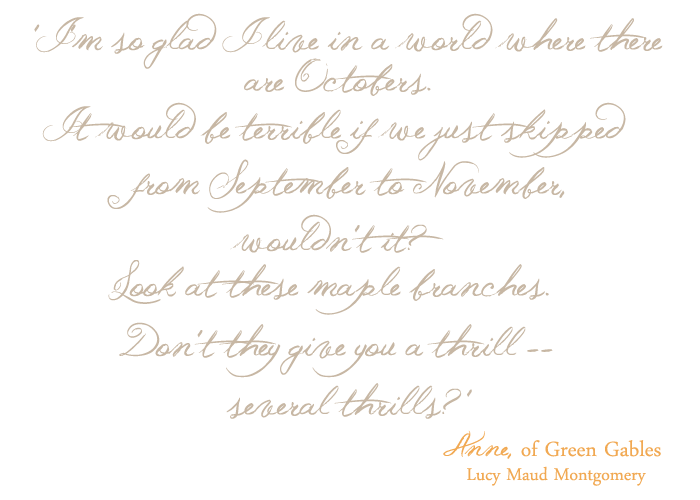 'I'm so glad I live in a world where there
are Octobers.
It would be terrible if we just skipped
from September to November,
wouldn't it?
Look at these maple branches.
Don't they give you a thrill --
several thrills?'
Anne, of Green Gables
Lucy Maud Montgomery